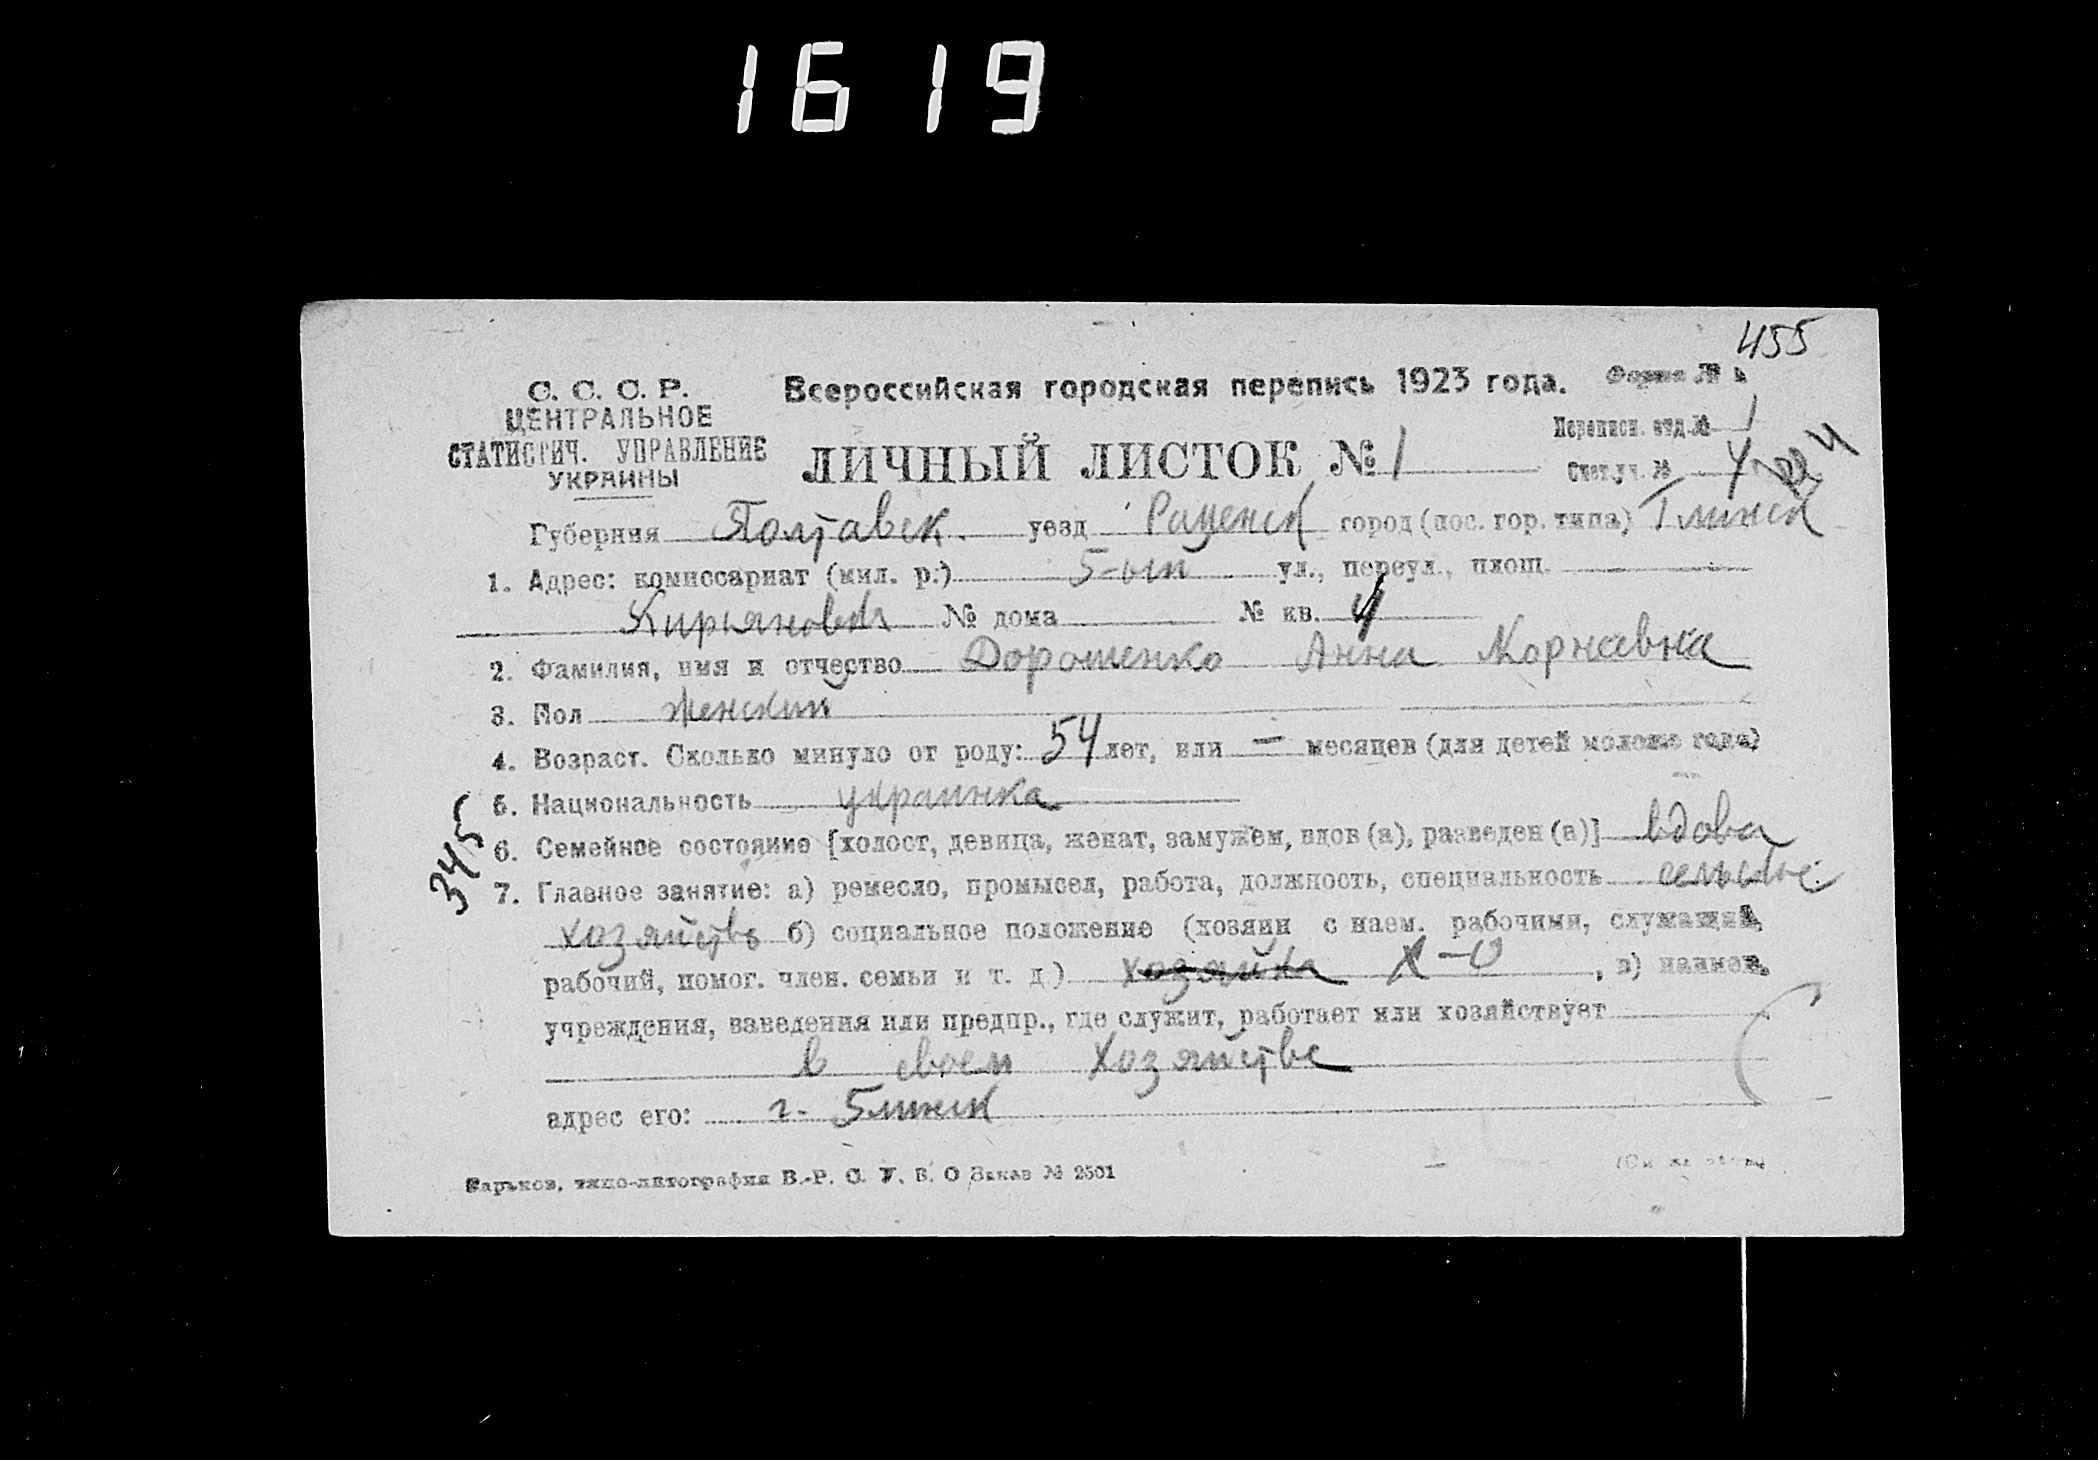 1619
455
С. С. С. Р.
ЦЕНТРАЛЬНОЕ
СТАТИСТИЧ. УПРАВЛЕНИЕ
УКРАИНЫ
Всероссийская городская перепись 1923 года. Форма №
Переписн. отд. № 1
ЛИЧНЫЙ ЛИСТОК № 1
Счет. уч. № 4
Губерния Полтавск. уезд Роменск город (пос. гор. типа) Глинск
1. Адрес: комиссариат (мил. р.) 5-ый ул., переул., площ.
Кирьяновка № дома № кв. 4
2. Фамилия, имя и отчество Дорошенко Анна Корнеевна
3. Пол женский
4. Возраст. Сколько минуло от роду: 54 лет, или — месяцев (для детей моложе года)
5. Национальность украинка
345
6. Семейное состояние [холост, девица, женат, замужем, вдов (а), разведен (а)] вдова
7. Главное занятие: а) ремесло, промысел, работа, должность, специальность сельское
хозяйство б) социальное положение (хозяин с наем. рабочими, служащий,
рабочий, помог. член. семьи и т. д.) хозяйка Х-О , в) наимен.
учреждения, заведения или предпр., где служит, работает или хозяйствует
в своем хозяйстве
адрес его: г. Глинск
Харьков, типо-литография В.-Р. С. У. В. О Заказ № 2501